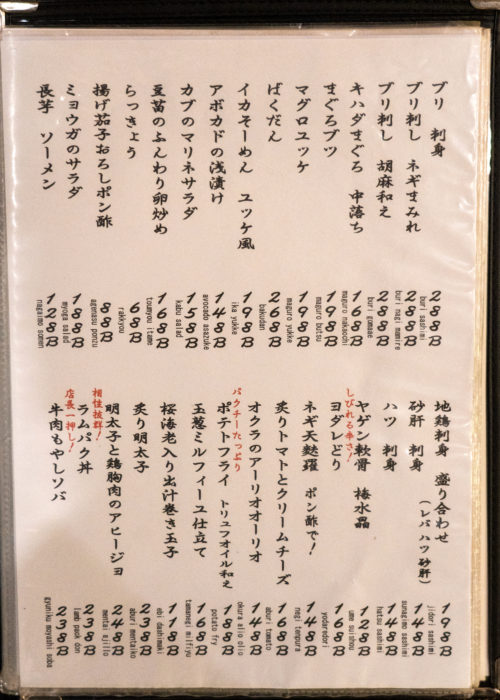 ブリ 刺身
288B
buri sashimi
ブリ刺し ネギまみれ
298B
buri nagi mamire
ブリ刺し 胡麻和え
288B
buri gomaae
キハダまぐろ 中落ち
168B
maguro nakaochi
まぐろブツ
198B
maguro butsu
マグロユッケ
198B
maguro yukke
ばくだん
268B
bakudan
イカそーめん ユッケ風
198B
ika yukke
アボカドの浅漬け
148B
avocado asazuke
カブのマリネサラダ
158B
kabu salad
豆苗のふんわり卵炒め
168B
toumyou itame
らっきょう
68B
rakkyou
揚げ茄子おろしポン酢
88B
agenasu ponzu
ミョウガのサラダ
188B
myoga salad
長芋 ソーメン
128B
nagaimo somen
地鶏刺身 盛り合わせ
(レバ ハツ 砂肝)
198B
jidori sashimi
砂肝 刺身
148B
sunagimo sashimi
ハツ 刺身
148B
hatsu sashimi
ヤゲン軟骨 梅水晶
128B
ume suishou
しびれる辛さ!
ヨダレどり
168B
yodaredori
ネギ天麩羅 ポン酢で!
148B
negi tenpura
炙りトマトとクリームチーズ
168B
aburi tomato
オクラのアーリオオーリオ
148B
okura alio olio
パクチーたっぷり
ポテトフライ トリュフオイル和え
188B
potato fry
玉葱ミルフィーユ仕立て
168B
tamanegi milfiyu
桜海老入り出汁巻き玉子
118B
ebi dashimaki
炙り明太子
238B
aburi mentaiko
明太子と鶏胸肉のアヒージョ
248B
mentai ajillo
相性抜群!
ラムパク丼
238B
lamb paak don
店長一押し!
牛肉もやしソバ
238B
gyuniku moyashi soba